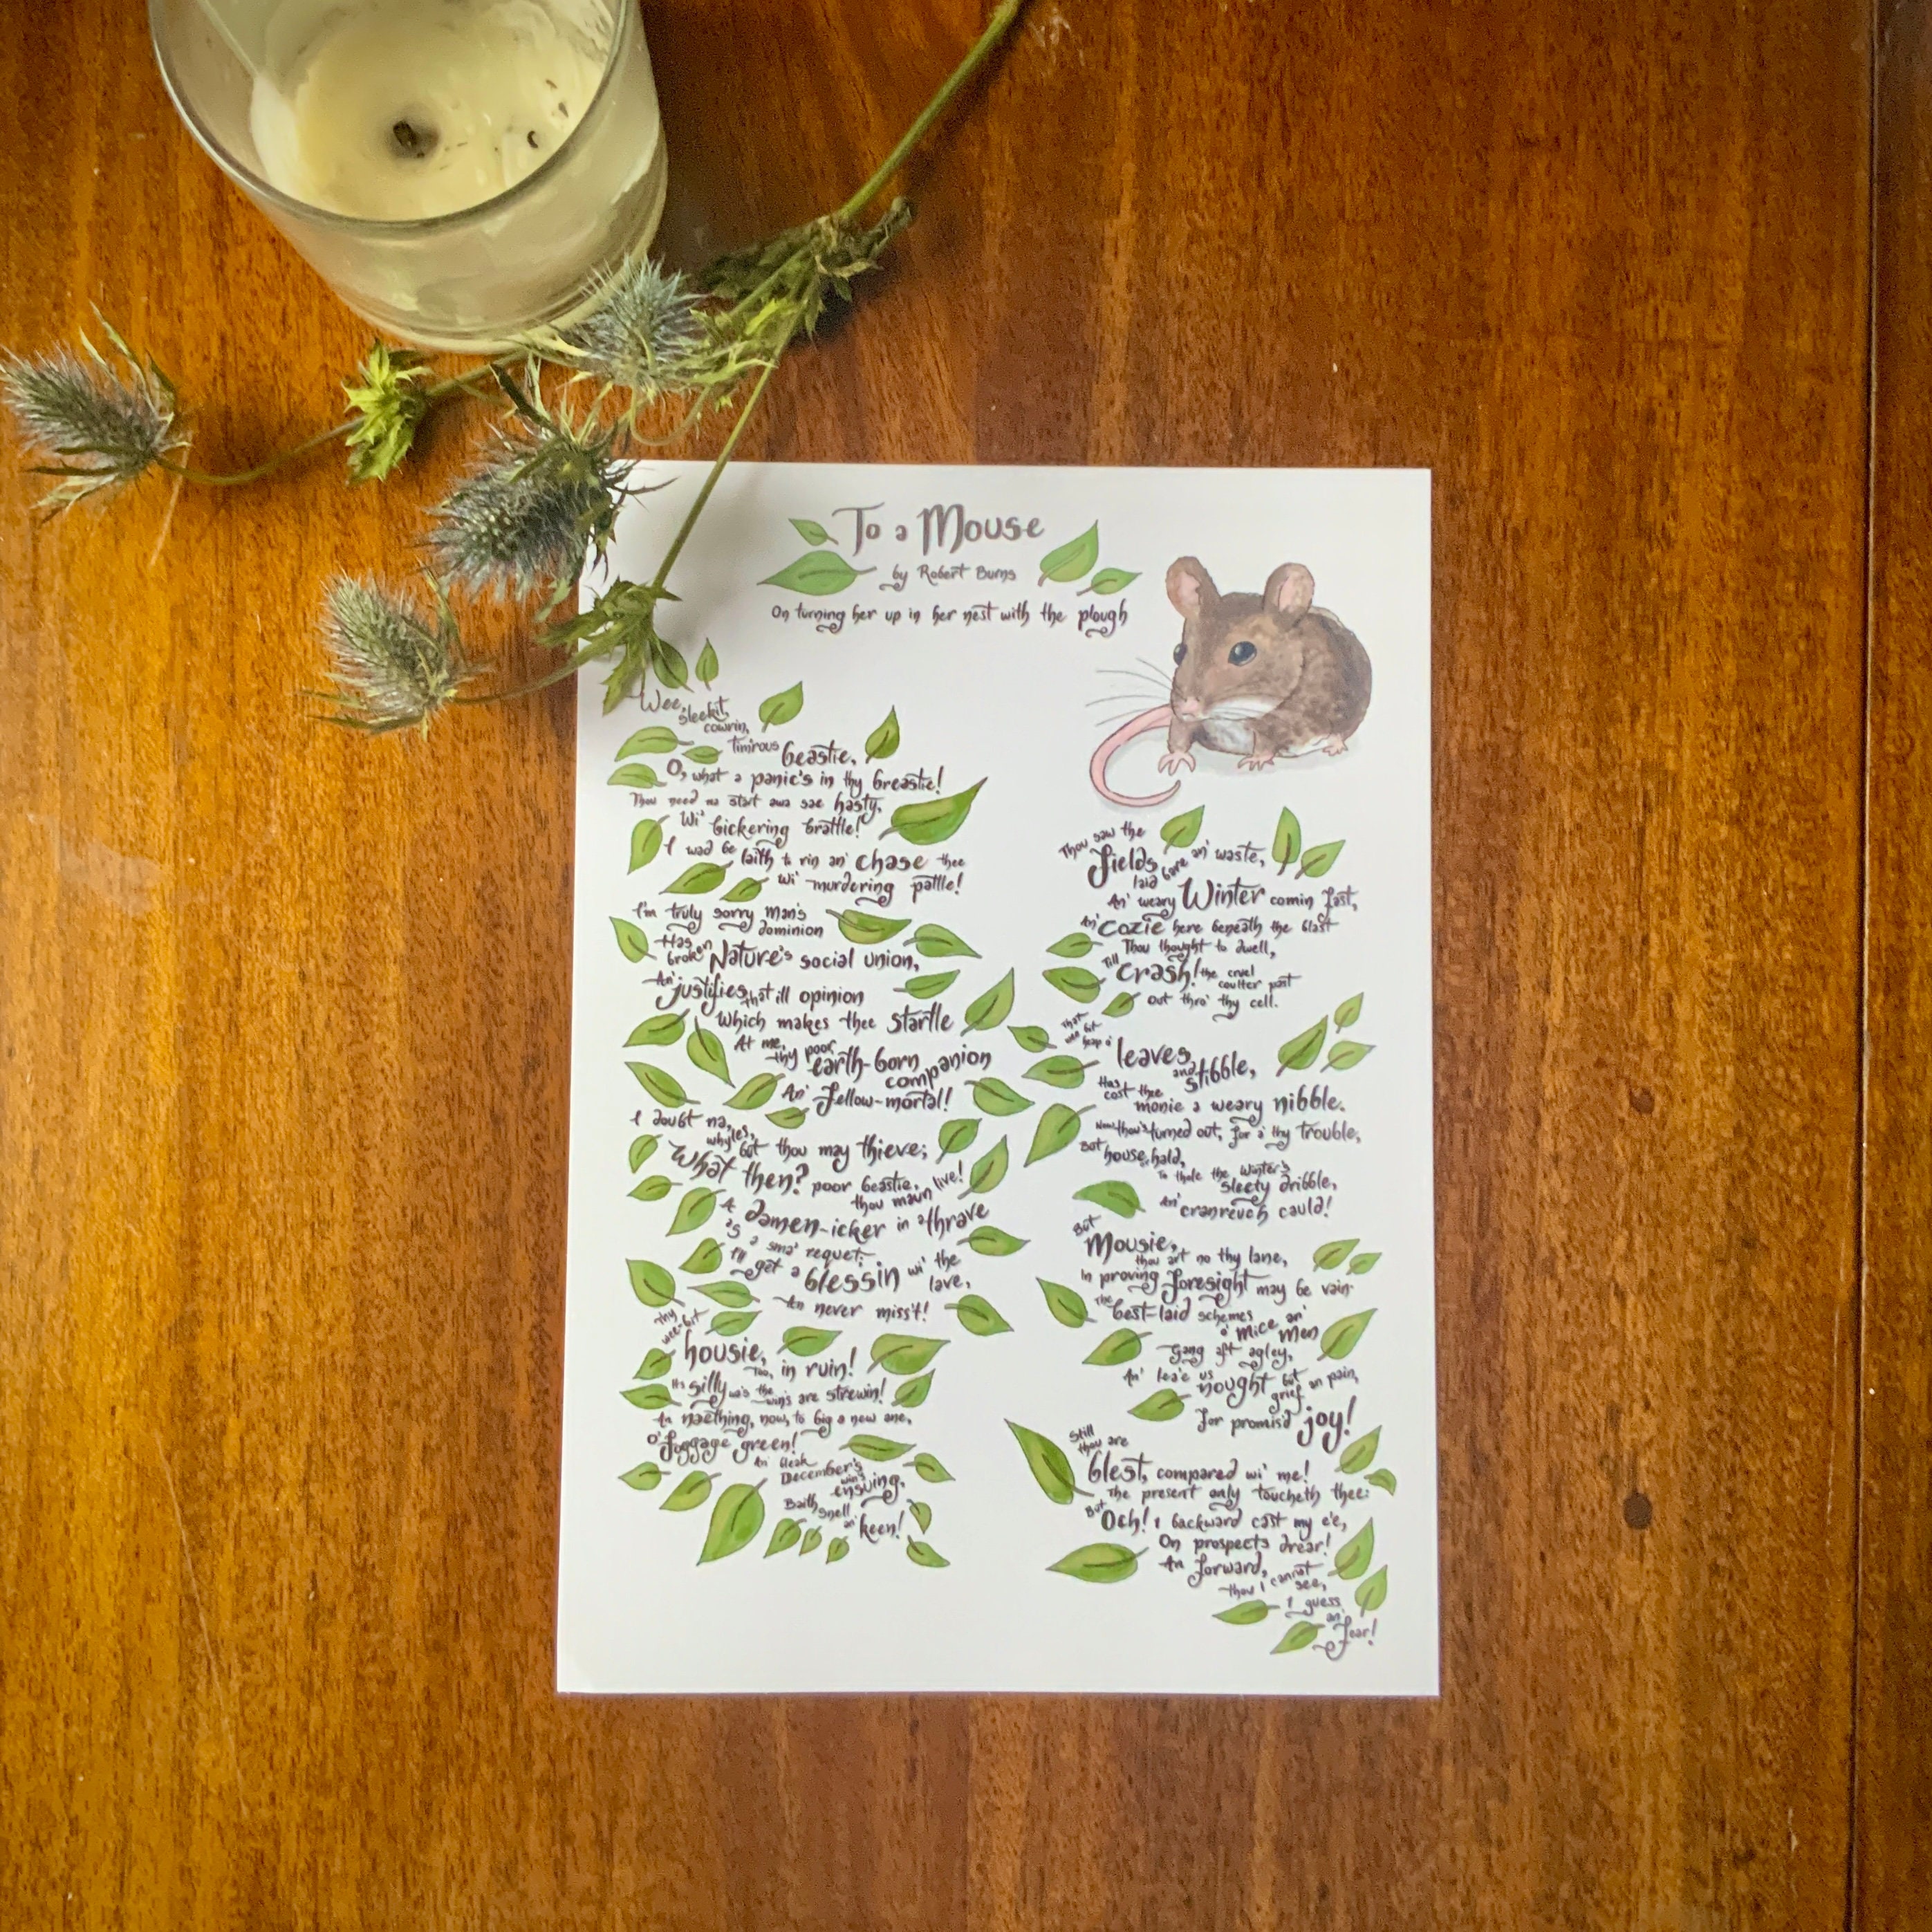 To a Mouse
by Robert Burns
On turning her up in her nest with the plough
Wee,
sleekit,
cowrin,
tim'rous beastie,
O, what a panic's in thy breastie!
Thou need na start awa sae hasty,
Wi' bickering brattle!
I wad be laith to rin an' chase thee
Wi' murdering pattle!
I'm truly sorry Man's
dominion
Has
broken Nature's social union,
An' justifies that ill opinion
Which makes thee startle
At me,
thy poor
earth-born
companion
An' fellow-mortal!
I doubt na,
whyles,
but thou may thieve;
What then? poor beastie,
thou maun live!
A daimen-icker in a thrave
'S a sma' request:
I'll get a blessin wi' the
lave,
An never miss't!
Thy
wee-bit
housie,
Too, in ruin!
Its silly wa's the win's are strewin!
An naething, now, to big a new ane,
O' foggage green!
An' bleak
December's
win's
ensuing,
Baith
snell
an' keen!
Thou saw the
fields
laid bare an' waste,
An' weary Winter comin fast,
An' cozie here beneath the blast
Thou thought to dwell,
Till crash! the cruel
coulter past
out thro' thy cell.
That
wee bit
heap o'
leaves,
and stibble,
Has
cost thee
monie a weary nibble.
Now thou's turned out, for a' thy trouble,
But house hald,
To thole the Winter's
sleety dribble,
An' cranreuch cauld!
But
Mousie,
thou art no thy lane,
In proving foresight may be vain:
The best-laid schemes
o' mice an'
men
Gang aft agley,
An' lea'e us
nought but
grief an pain,
for promis'd joy!
Still
thou are
blest, compared wi' me!
The present only toucheth thee:
But Och! I backward cast my e'e,
On prospects drear!
An forward,
thou I cannot
see,
I guess
an'
fear!